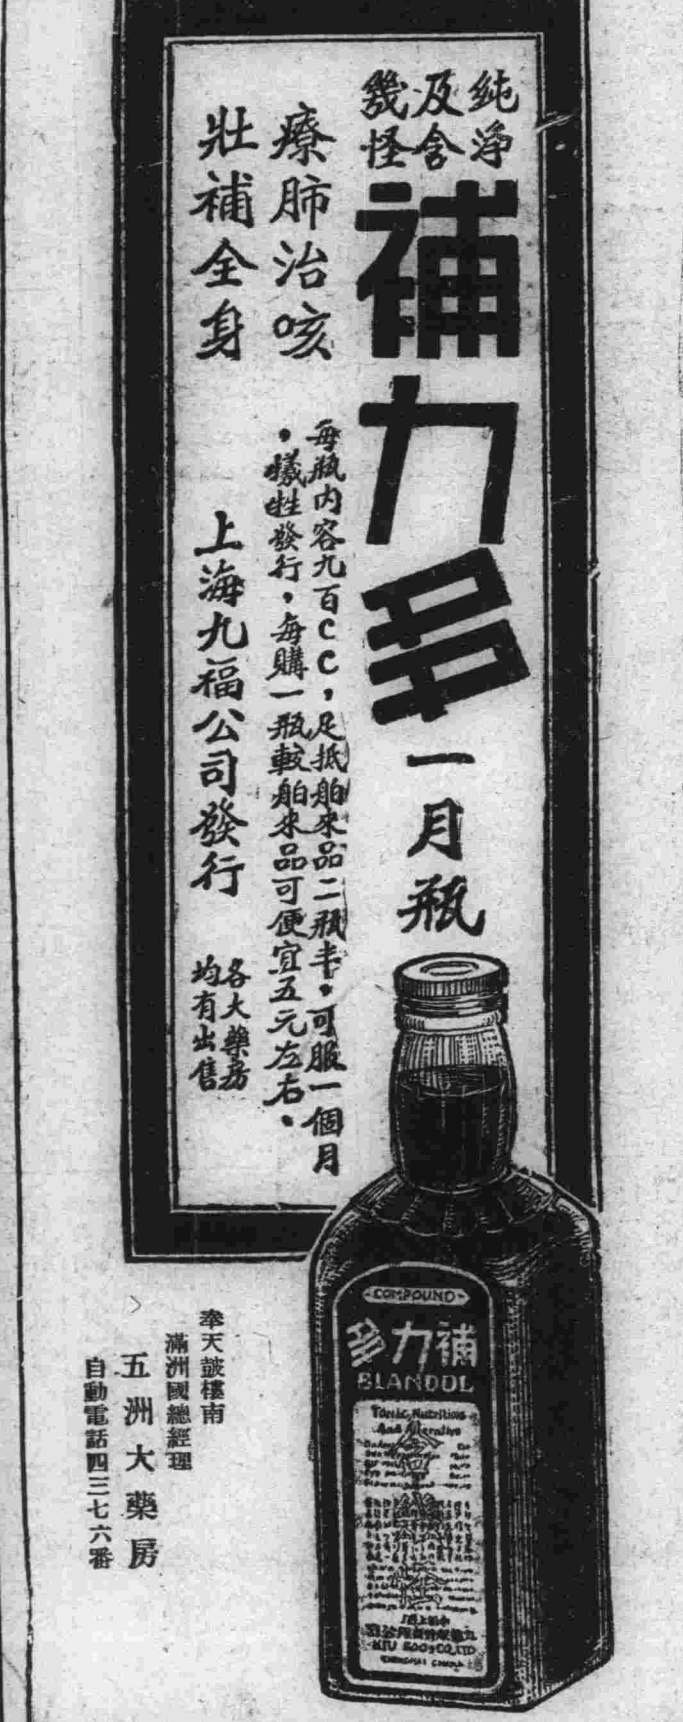 純淨
及含
幾怪
補力多
一月瓶
療肺治咳
壯補全身
每瓶内容九百CC，足抵舶來品二瓶半。可服一個月
。犧牲發行，每購一瓶較舶來品可便宜五元左右。
上海九福公司發行
各大藥房
均有出售
奉天鼓樓南
滿洲國總經理
五洲大藥房
自動電話四三七六番
COMPOUND
多力補
BLANDOL
Tonic, Nutritious
And Alterative
含幾怪
KIU FOO & CO. LTD
SHANGHAI CHINA